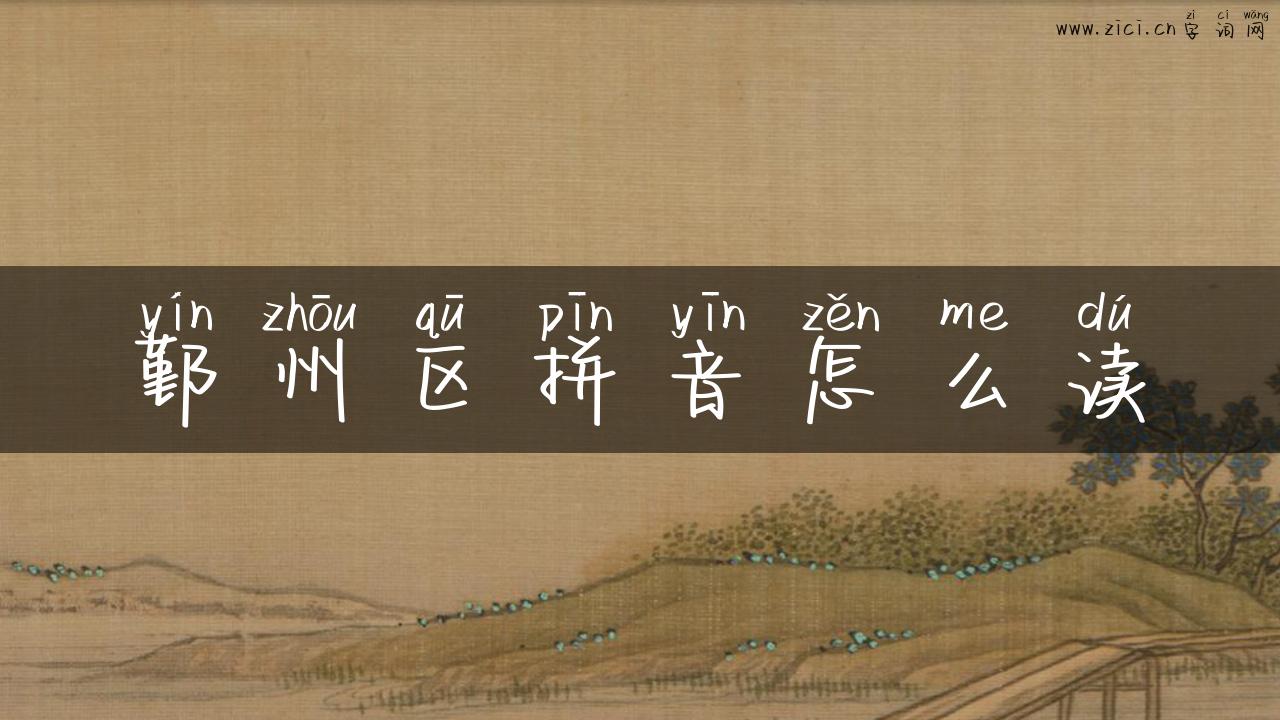 zì cí wǎng
www.zici.cn字词网
yín zhōu qū pīn yīn zěn me dú
鄞州区拼音怎么读